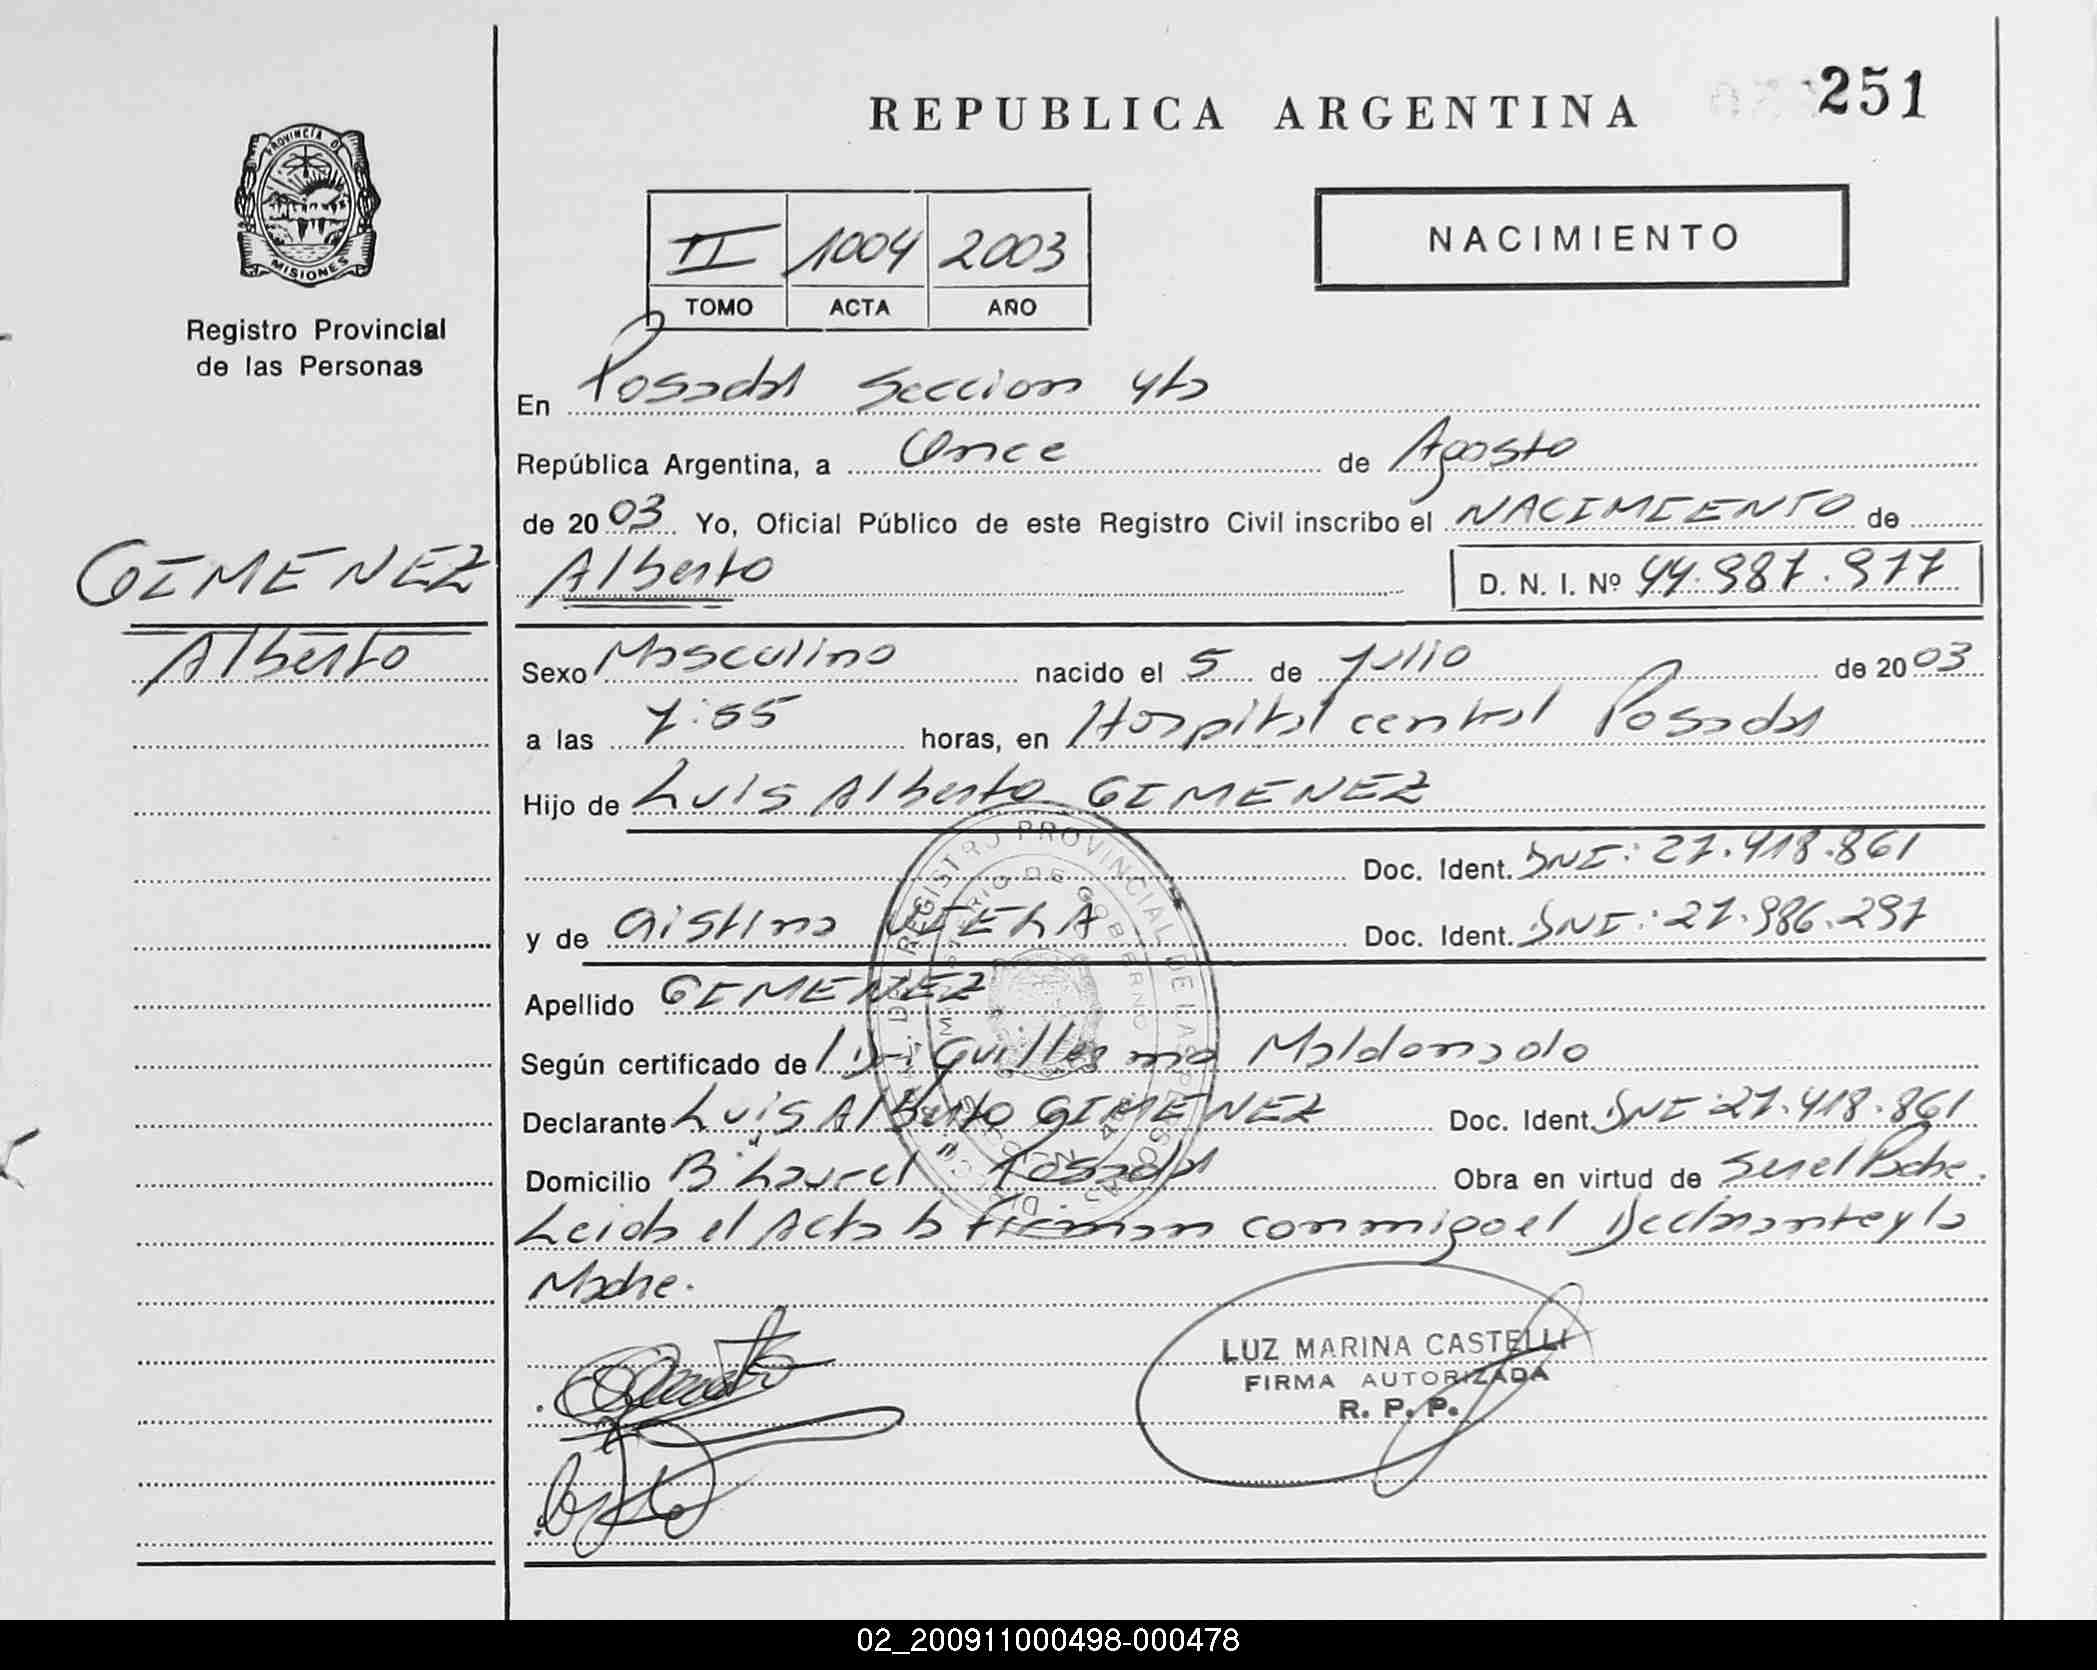 REPUBLICA ARGENTINA
251
PROVINCIA DE
MISIONES
Registro Provincial
de las Personas
II 1004 2003
TOMO ACTA AÑO
NACIMIENTO
En Posadas Seccion 4ta
República Argentina, a Once de Agosto
de 20 03 Yo, Oficial Público de este Registro Civil inscribo el NACIMIENTO de
GIMENEZ
Alberto
Alberto D. N. I. Nº 44.987.977
Sexo Masculino nacido el 5 de Julio de 20 03
a las 7:55 horas, en Hospital central Posadas
Hijo de Luis Alberto GIMENEZ
Doc. Ident. DNI: 27.418.861
y de Cristina Doc. Ident. DNI: 27.986.297
Apellido GIMENEZ
Según certificado de Dr. Guillermo Maldonado
Declarante Luis Alberto GIMENEZ Doc. Ident. DNI: 27.418.861
Domicilio Bº Laurel Posadas Obra en virtud de Ser el Padre.
Leida el Acta la firman conmigo el Declarante y la
Madre.
REGISTRO PROVINCIAL DE LAS PERSONAS
MINISTERIO DE GOBIERNO
LUZ MARINA CASTELLI
FIRMA AUTORIZADA
R. P. P.
02_200911000498-000478